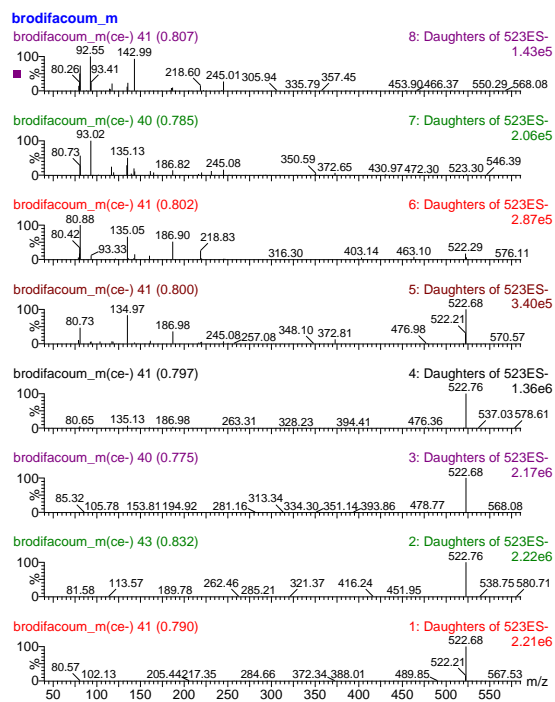 brodifacoum_m
brodifacoum_m(ce-) 41 (0.807) 8: Daughters of 523ES-
1.43e5
100 % 0
80.26 92.55 93.41 142.99 218.60 245.01 305.94 335.79 357.45 453.90 466.37 550.29 568.08
brodifacoum_m(ce-) 40 (0.785) 7: Daughters of 523ES-
2.06e5
100 % 0
80.73 93.02 135.13 186.82 245.08 350.59 372.65 430.97 472.30 523.30 546.39
brodifacoum_m(ce-) 41 (0.802) 6: Daughters of 523ES-
2.87e5
100 % 0
80.42 80.88 93.33 135.05 186.90 218.83 316.30 403.14 463.10 522.29 576.11
brodifacoum_m(ce-) 41 (0.800) 5: Daughters of 523ES-
3.40e5
100 % 0
80.73 134.97 186.98 245.08 257.08 348.10 372.81 476.98 522.21 522.68 570.57
brodifacoum_m(ce-) 41 (0.797) 4: Daughters of 523ES-
1.36e6
100 % 0
80.65 135.13 186.98 263.31 328.23 394.41 476.36 522.76 537.03 578.61
brodifacoum_m(ce-) 40 (0.775) 3: Daughters of 523ES-
2.17e6
100 % 0
85.32 105.78 153.81 194.92 281.16 313.34 334.30 351.14 393.86 478.77 522.68 568.08
brodifacoum_m(ce-) 43 (0.832) 2: Daughters of 523ES-
2.22e6
100 % 0
81.58 113.57 189.78 262.46 285.21 321.37 416.24 451.95 522.76 538.75 580.71
brodifacoum_m(ce-) 41 (0.790) 1: Daughters of 523ES-
2.21e6
100 % 0
80.57 102.13 205.44 217.35 284.66 372.34 388.01 489.85 522.21 522.68 567.53
m/z
50 100 150 200 250 300 350 400 450 500 550